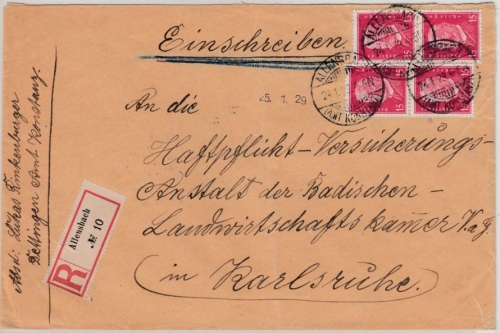 Einschreiben.
ALLENSBACH
24.1.
(AMT KONSTANZ)
15
15
15
15
25. 1. 29
An die
Haftpflicht-Versicherungs-
Anstalt der Badischen
Landwirtschaftskammer V.a.G.
in Karlsruhe.
R
Allensbach
№ 10
Absd: Lukas Finkenburger
Dettingen Amt Konstanz.